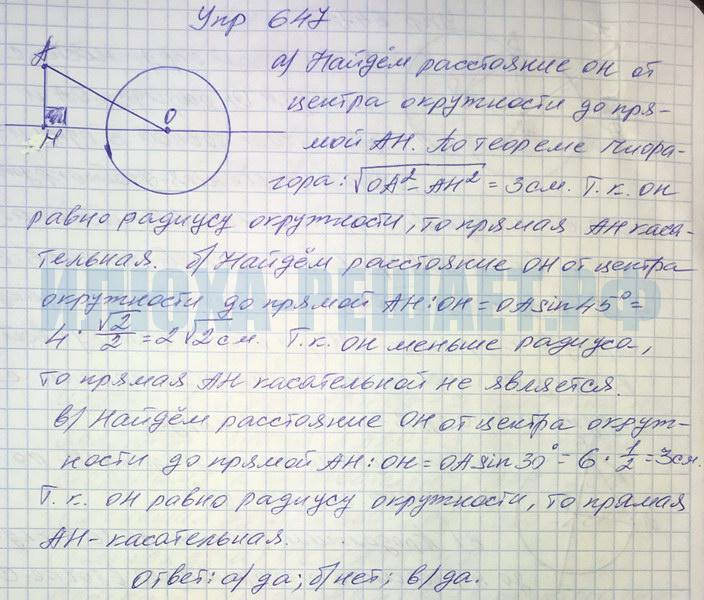 Упр 647
А
О
Н
а) Найдём расстояние ОН от
центра окружности до пря-
мой АН. По теореме Пифа-
гора: √OA² - AH² = 3 см. Т.к. он
равно радиусу окружности, то прямая АН каса-
тельная. б) Найдём расстояние ОН от центра
окружности до прямой АН: ОН = ОА sin 45° =
4 · √2/2 = 2√2 см. Т.к. он меньше радиуса,
то прямая АН касательной не является.
в) Найдём расстояние ОН от центра окруж-
ности до прямой АН: ОН = ОА sin 30° = 6 · 1/2 = 3 см.
Т.к. он равно радиусу окружности, то прямая
АН - касательная.
Ответ: а) да; б) нет; в) да.